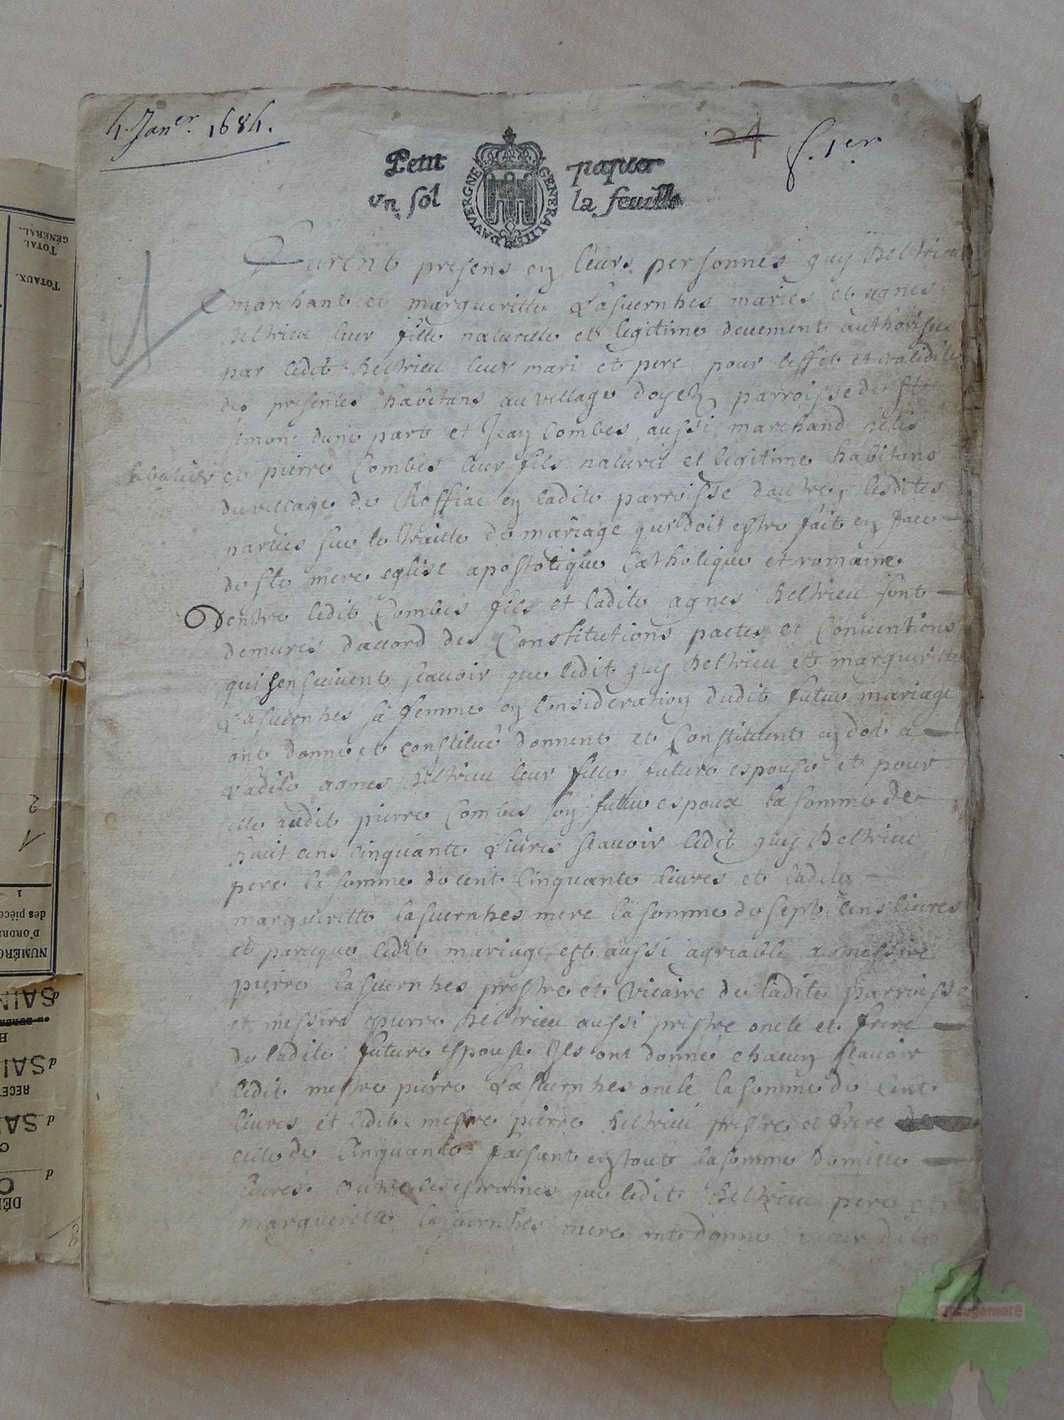 4. Jan.er 1684.
24
f. 1er
Petit papier
un sol la feuille
GENERALITE DAUVERGNE
Furent presens en leurs personnes guy Beltrieu
marchant et margueritte Lasuernhes maries et agnes
Beltrieu leur fille naturelle et legitime deuement authorisee
par ledit Beltrieu leur mari et pere pour leffet et validite
des presentes habitans au village doyez parroisse de St
Simon dune part et Jean Combes aussi marchand
et pierre Combes leur fils naturel et legitime habitans
du village de Roffiac en ladite parroisse dautre lesdites
parties sur le traitte de mariage qui doit estre fait en face
de ste mere eglise apostolique Catholique et romaine
Dentre ledit Combes fils et ladite agnes Beltrieu sont
demures daccord des Constitutions pactes et Conuentions
qui sensuiuent scauoir que ledit guy Beltrieu et margueritte
Lasuernhes sa femme en Consideration dudit futur mariage
ont donne et constitué donnent et Constituent en dot a
Ladite agnes Beltrieu leur fille future espouse et pour
elle audit pierre Combes son futur espoux la somme de
huit cens cinquante Liures scauoir ledit guy Beltrieu
pere la somme de cent Cinquante liures et ladite
margueritte Lasuernhes mere la somme de sept Cens liures
et parceque ledit mariage est aussi agreable a messire
pierre Lasuernhes prestre et Vicaire de ladite parroisse
et messire pierre Beltrieu aussi prestre oncle et frere
de ladite future espouse Ils ont donne chacun scauoir
ledit messre pierre Lasuernhes oncle la somme de Cent
liures et ledit messre pierre Beltrieu prestre et frere
celle de Cinquante faisant en tout la somme de mille
liures outre les que ledit Beltrieu pere et
margueritte Lasuernhes mere ont donne
TOTAL GÉNÉRAL.
TOTAUX.
2
1
des pièces
D'ORDRE
NUMÉRO